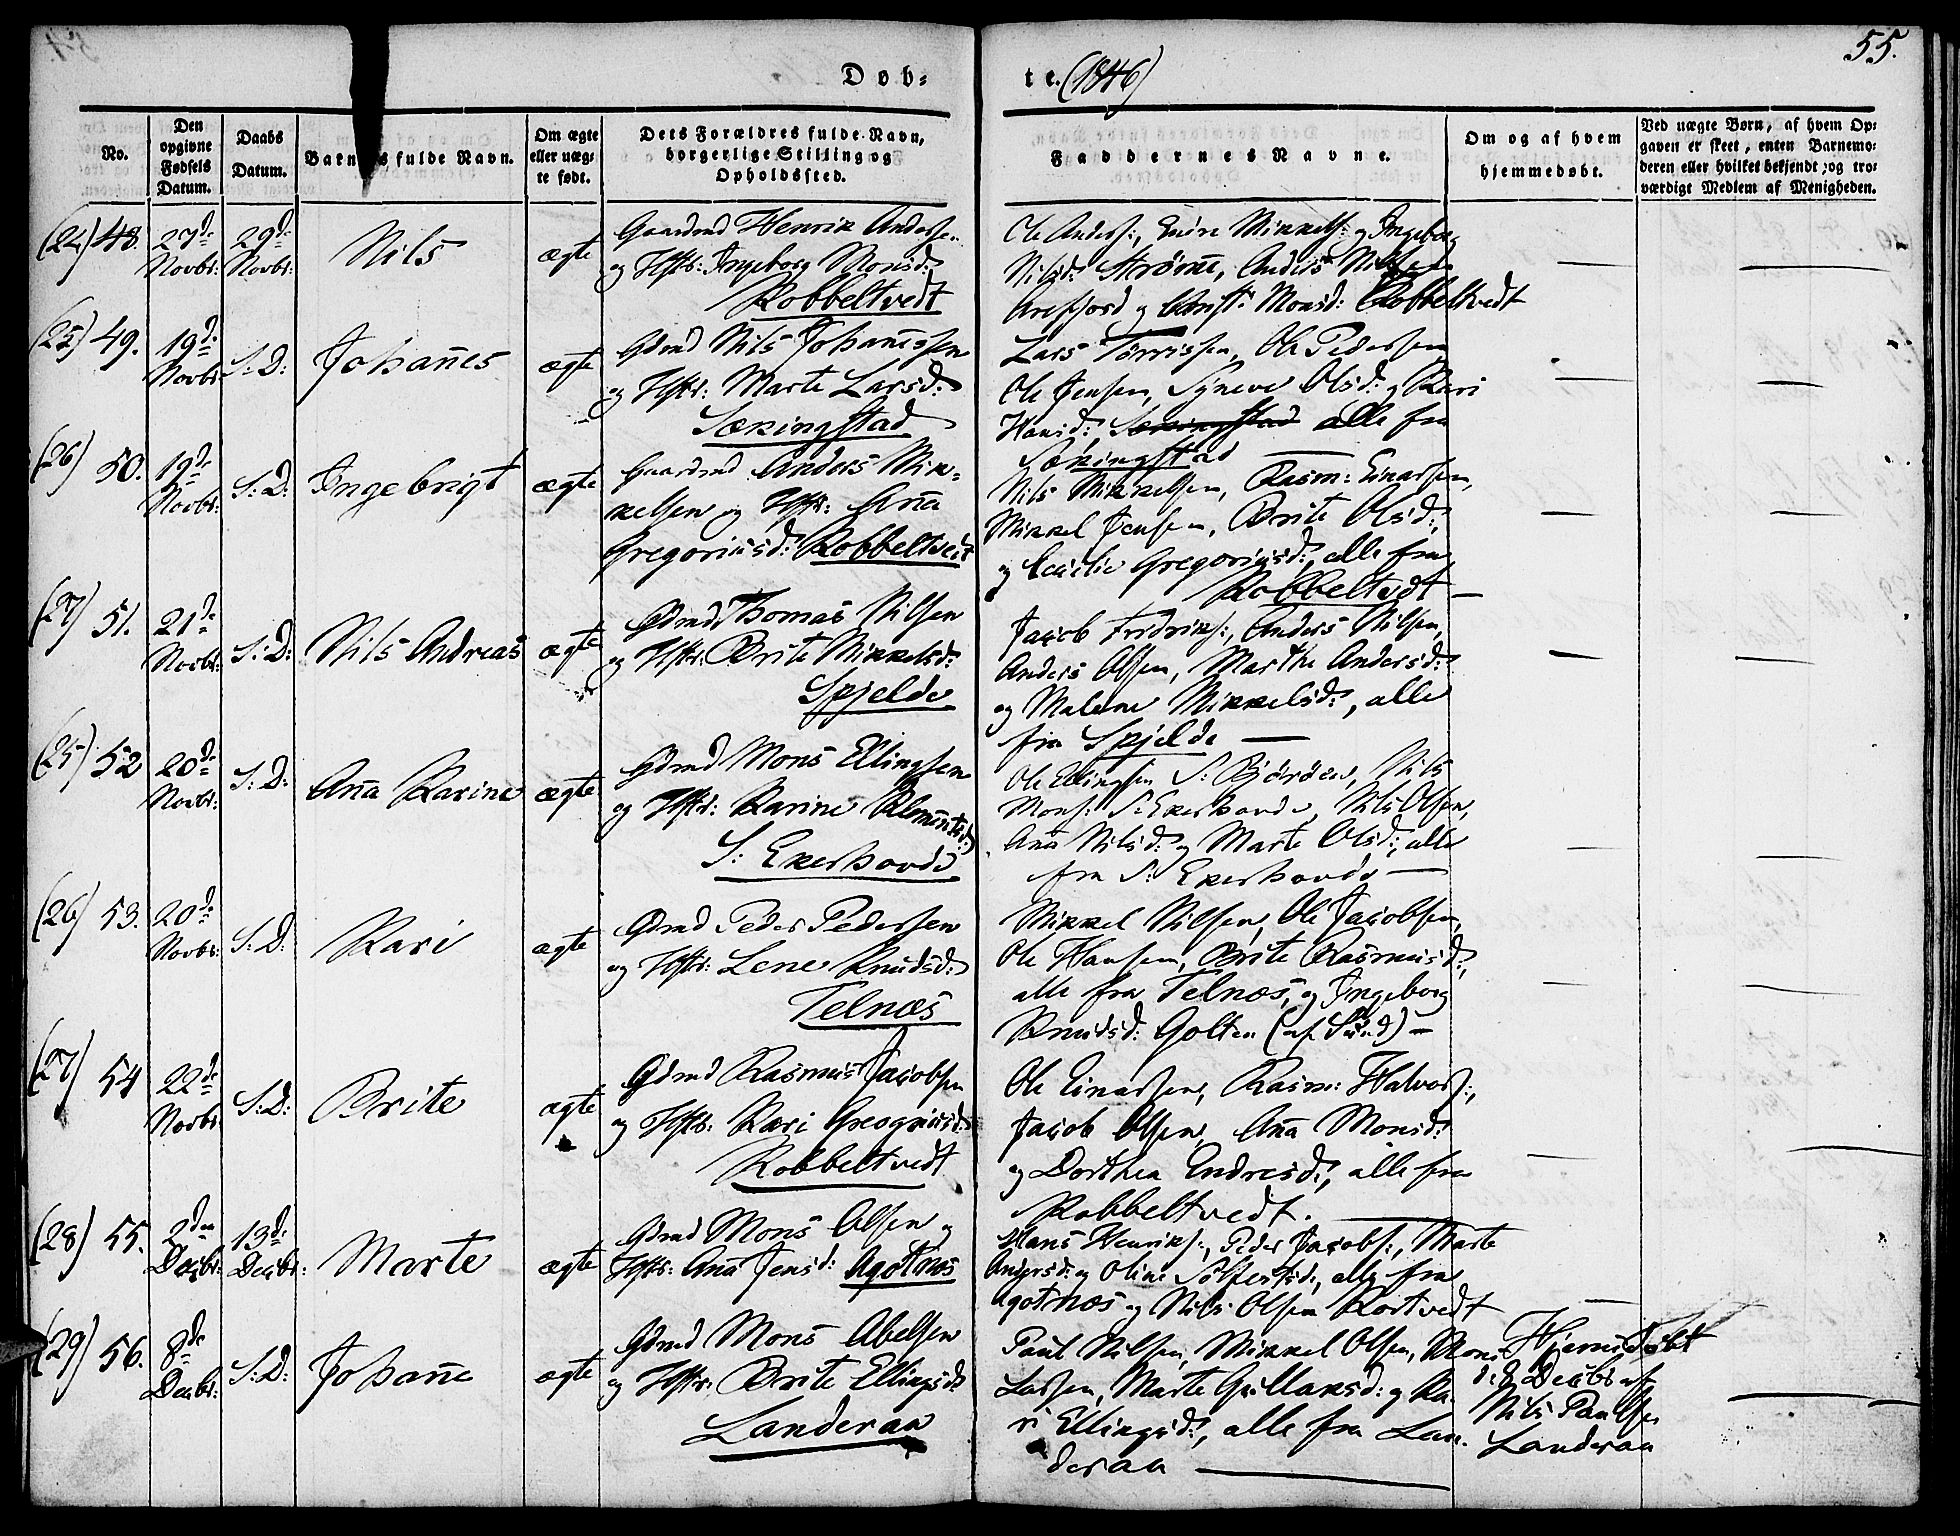 55.
Døb-
te. (1846)
No.
Den opgivne Fødsels Datum.
Daabs Datum.
Barnets fulde Navn.
Om ægte eller uægte født.
Dets Forældres fulde Navn, borgerlige Stilling og Opholdssted.
Faddernes Navne.
Om og af hvem hjemmedøbt.
Ved uægte Børn, af hvem Opgaven er skeet, enten Barnemoderen eller hvilket bekjendt og troværdigt Medlem af Menigheden.
(24) 48. 27de Novbr: 29de Novbr: Nils ægte
Gaardmd Henrik Anderse.
og Hstr: Ingeborg Monsd:
Robbeltvedt
Ole Anders:, Endre Mikkels: og Ingeborg
Nilsd: Strømme, Anders Nilsen
Arefjord og Christi Monsd: Robbeltvedt
(25) 49. 19de Novbr: S:D: Johannes ægte
Gdmd Nils Johannessen
og Hstr: Marte Larsd:
Sækingstad
Lars Tørrissen, Ole Pedersen
Ole Jensen, Syneve Olsd: og Kari
Hansd: Sækingstad alle fra
Sækingstad
(26) 50. 19de Novbr: S:D: Ingebrigt ægte
Gaardmd Anders Mik-
kelsen og Hstr: Anna
Gregoriusd: Robbeltvedt
Nils Mikkelsen, Rasm: Einarsen,
Mikkel Jensen, Brite Olsd:,
og Cecilie Gregoriusd:, alle fra
Robbeltvedt
(27) 51. 21de Novbr: S:D: Nils Andreas ægte
Gdmd Thomas Nilsen
og Hstr: Brite Mikkelsd:
Spjelde
Jacob Fredriks:, Anders Nilsen,
Anders Olsen, Marthe Andersd:
og Malene Mikkelsd:, alle
fra Spjelde
(25) 52 20de Novbr: S:D: Anna Karine ægte
Gdmd Mons Ellingsen
og Hstr: Karine Klemetsd:
S: Ekerhovde
Ole Ellingsen S: Bjørøen, Nils
Mons: S: Ekerhovde, Nils Olsen,
Anna Nilsd: og Marte Olsd:, alle
fra S: Ekerhovde
(26) 53. 20de Novbr: S:D: Kari ægte
Gdmd Peder Pedersen
og Hstr: Lene Knudsd:
Telnæs
Mikkel Nilsen, Ole Jacobsen,
Ole Hansen, Brite Rasmusd:,
alle fra Telnæs, og Ingeborg
Knudsd: Golten (af Sund)
(27) 54 22de Novbr: S:D: Brite ægte
Gdmd Rasmus Jacobsen
og Hstr: Kari Gregoriusd:
Robbeltvedt
Ole Einarsen, Rasm: Halvors:,
Jacob Olsen, Anna Monsd:
og Dorthea Endresd:, alle fra
Robbeltvedt.
(28) 55. 2den Decbr: 13de Decbr: Marte ægte
Gdmd Mons Olsen og
Hstr: Anna Jensd: Agotnæs
Hans Henriks:, Peder Jacobs:, Marte
Andersd: og Oline Solfestsd:, alle fra
Agotnæs og Nils Olsen Kortvedt
(29) 56. 8de Decbr: S:D: Johanne ægte
Gdmd Mons Abelsen
og Hstr: Brite Ellingsd:
Landeraa
Paul Nilsen, Mikkel Olsen, Mons
Larsen, Marte Gullaksd: og Ka-
ri Ellingsd:, alle fra Lan-
deraa
Hjemmedøbt
d: 8 Decbr af
Nils Paulsen
Landeraa